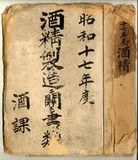 昭和十七年度
酒精製造関書類
酒課
酒精